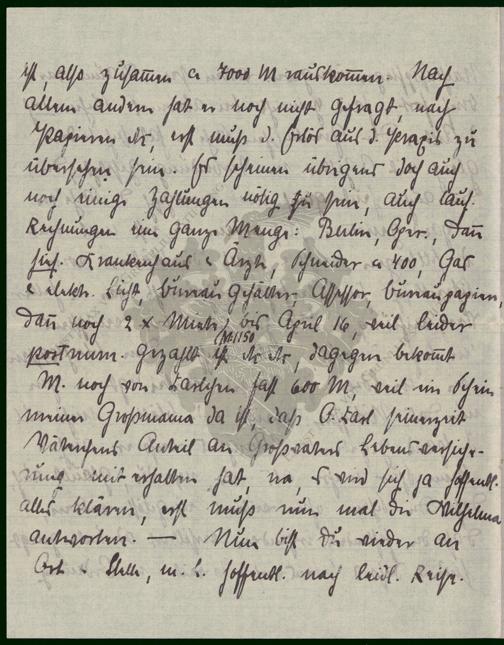 ist, also zusammen c 7000 M rauskommen. Nach
allem andern hat er noch nicht gefragt, nach
Papieren etc, erst muß d. Erlös aus d. Praxis zu
übersehen sein. Es scheinen übrigens doch auch
noch einige Zahlungen nötig zu sein, auch lauf.
Rechnungen eine ganze Menge: Berlin, Oper., dann
hies. Krankenhaus & Ärzte, Schneider c 400, Gas
& elektr. Licht, Bureaugehälter, Assessor, Bureaupapier,
dann noch 2 x Miete, bis April 16, weil leider
postnum. gezahlt ist etc etc, dagegen bekommt
(M 1150
M. noch von Karlchen fast 600 M, weil ein Schein
meiner Großmama da ist, daß O. Karl seinerzeit
Väterchens Anteil an Großvaters Lebensversiche-
rung mit erhalten hat, na, es wird sich ja hoffentl.
alles klären, erst muß nun mal die Wilhelma
antworten. — Nun bist Du wieder an
Ort & Stelle, m. L. hoffentl. nach leidl. Reise.